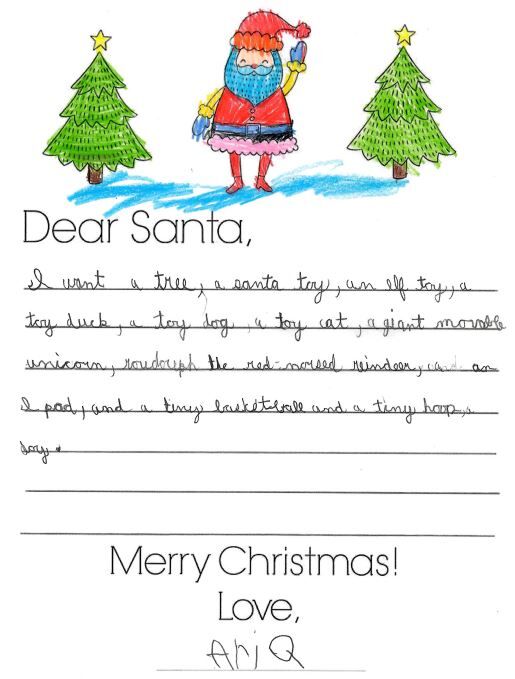 Dear Santa,
I want a tree, a santa toy, an elf toy, a
toy duck, a toy dog, a toy cat, a giant movable
unicorn, roudouph the red-norsed reindeer, and an
I pad, and a tiny basketball and a tiny hoop,
toy.
Merry Christmas!
Love,
Ari Q